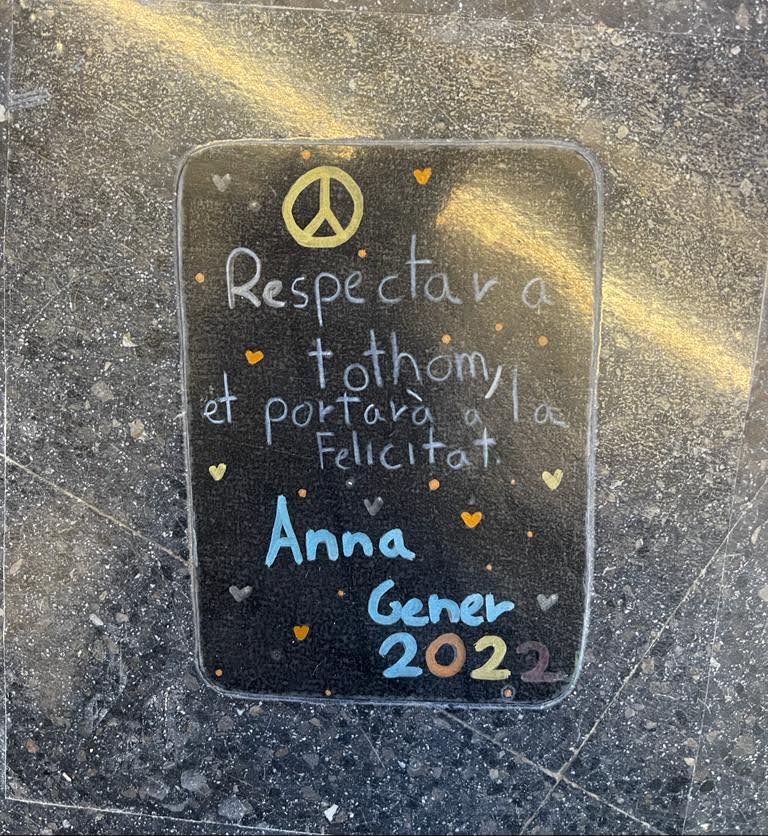 Respectar a
tothom,
et portarà a la
Felicitat.
Anna
Gener
2022